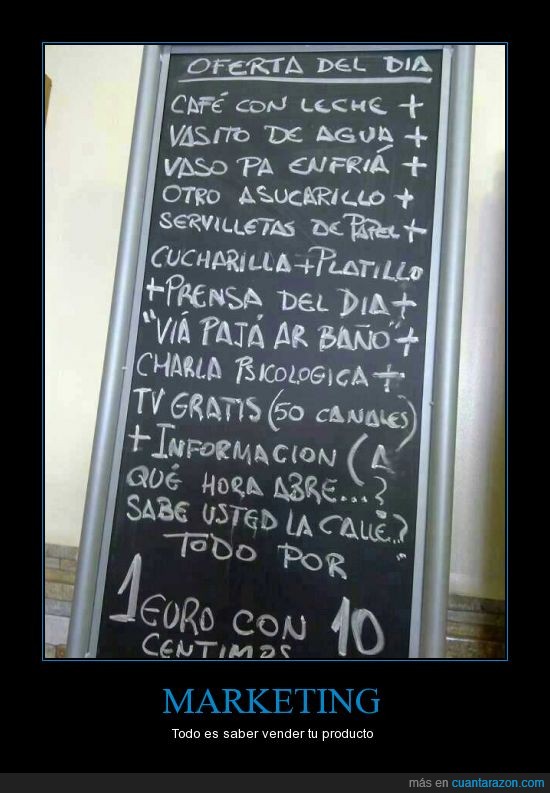 OFERTA DEL DIA
CAFÉ CON LECHE +
VASITO DE AGUA +
VASO PA ENFRIÁ +
OTRO ASUCARILLO +
SERVILLETAS DE PAPEL +
CUCHARILLA + PLATILLO
+ PRENSA DEL DIA +
"VIÁ PAJÁ AR BAÑO" +
CHARLA PSICOLOGICA +
TV GRATIS (50 CANALES)
+ INFORMACION (A
QUÉ HORA ABRE...?
SABE USTED LA CALLE..?
TODO POR "
1 EURO CON 10
CENTIMOS
MARKETING
Todo es saber vender tu producto
más en cuantarazon.com